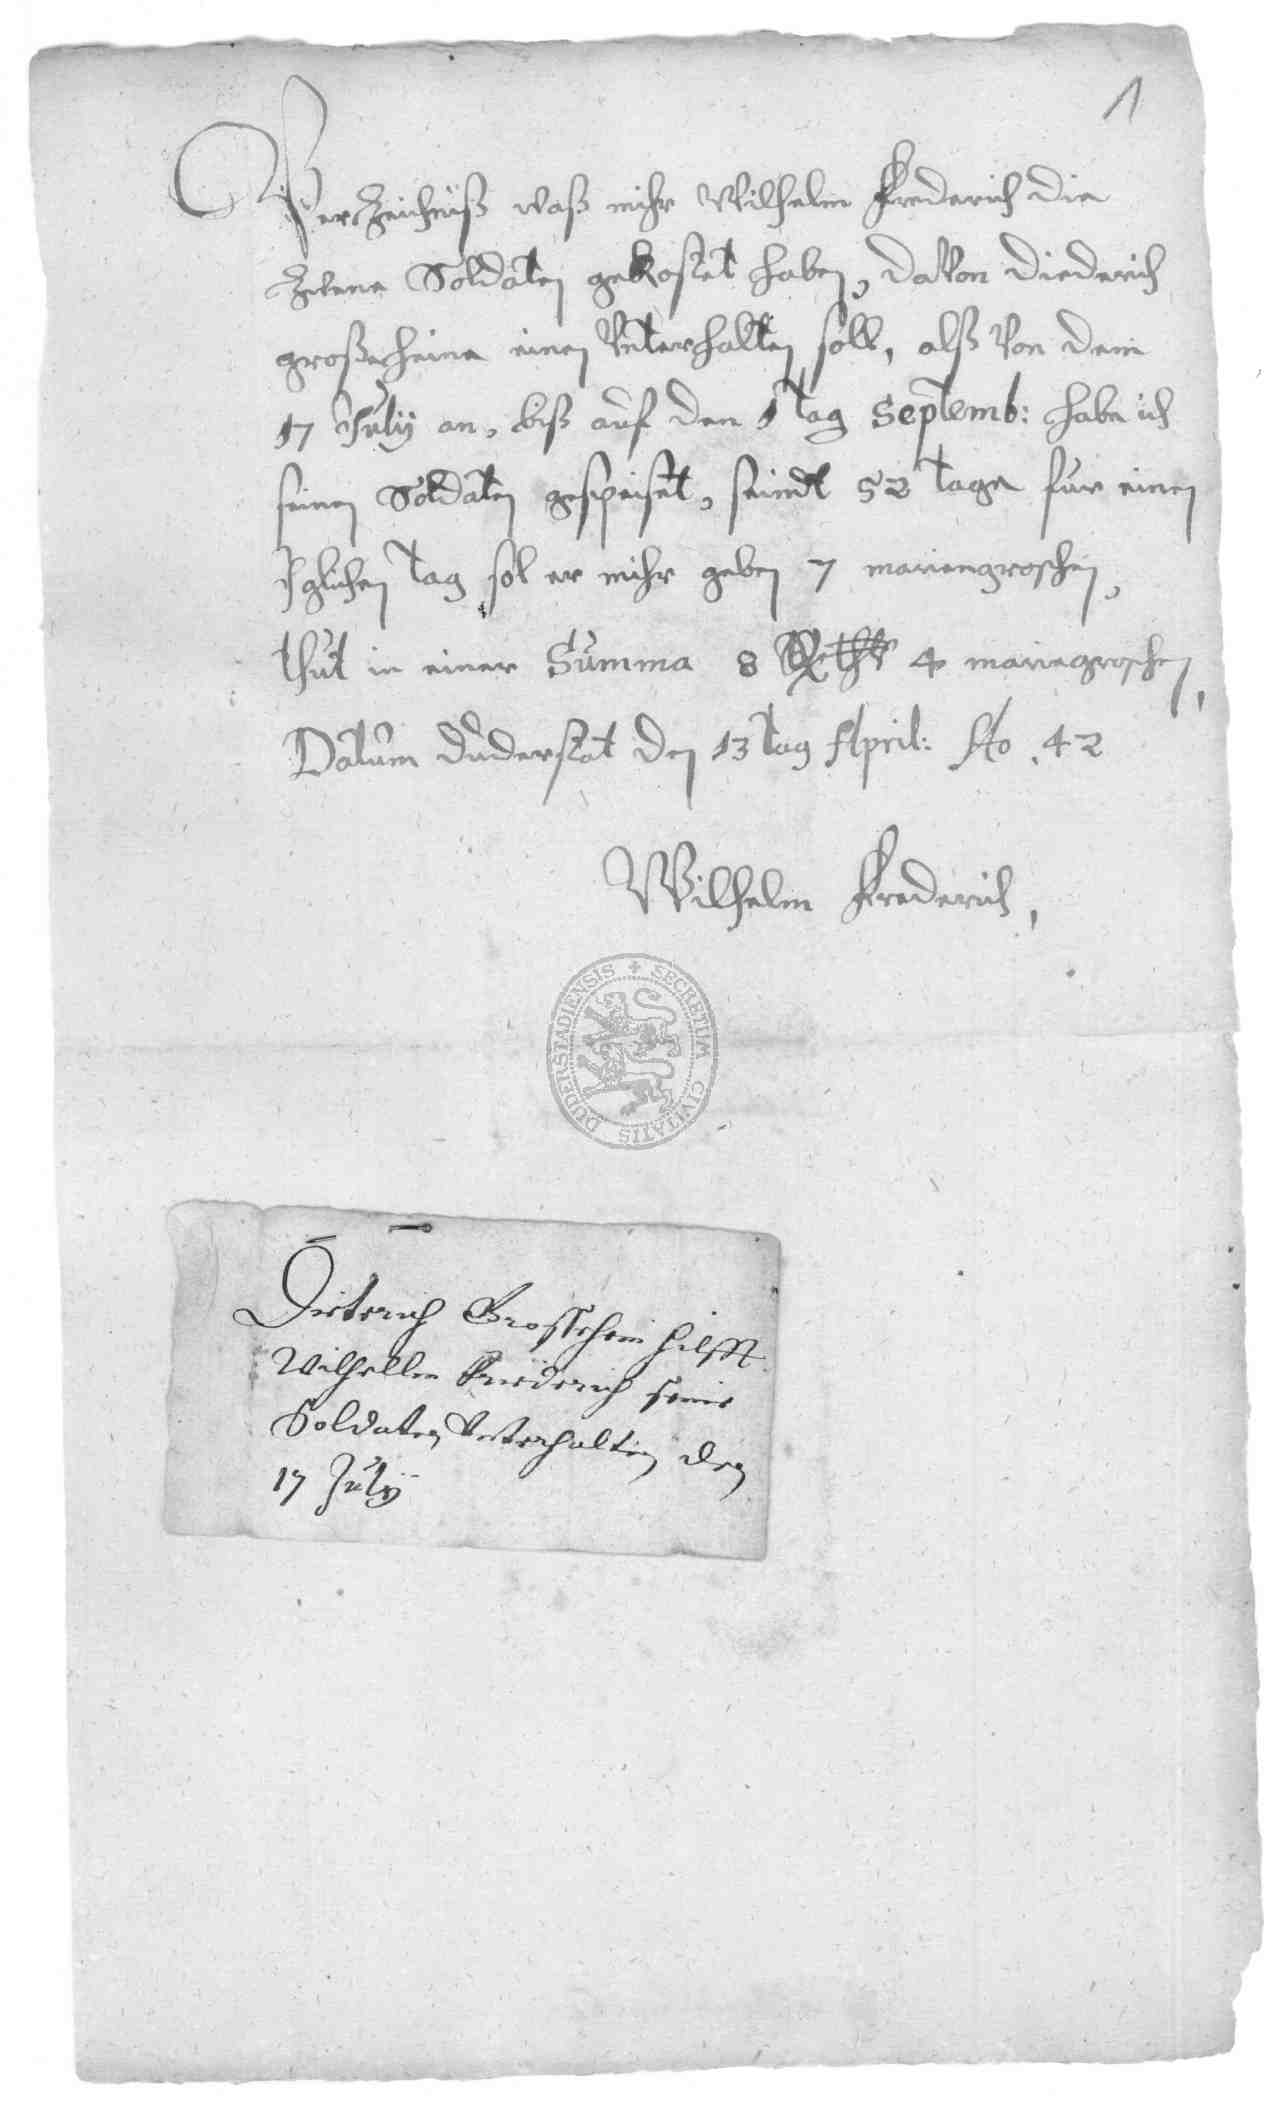 1
Verzeichnüß waß mihr Wilhelm Frederich die
zwene Soldaten gekostet haben, davon Diederich
großeheine einen Unterhalten soll, alß Von dem
17 July an, biß auf den 1 tag Septemb: habe ich
seinen Soldaten gespeiset, seindt 52 tage fur einen
Iglichen tag sol er mihr geben 7 mariengroschen,
thut in einer Summa 8 4 mariegroschen,
Datum duderstat den 13 tag April: Ao. 42
Wilhelm Frederich,
SECRETUM CIVITATIS DUDERSTADIENSIS
Dieterich Grossehein hilfft
Wilhellm Friederich seine
Soldaten Unterhalten den
17 July